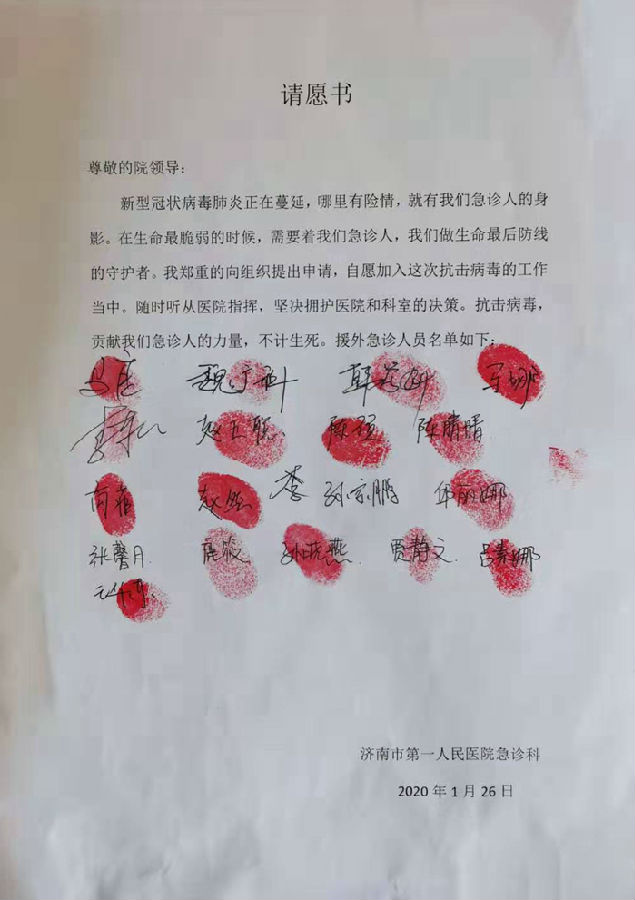 请愿书
尊敬的院领导：
新型冠状病毒肺炎正在蔓延，哪里有险情，就有我们急诊人的身
影。在生命最脆弱的时候，需要着我们急诊人，我们做生命最后防线
的守护者。我郑重的向组织提出申请，自愿加入这次抗击病毒的工作
当中。随时听从医院指挥，坚决拥护医院和科室的决策。抗击病毒，
贡献我们急诊人的力量，不计生死。援外急诊人员名单如下：
陈晴晴
孙宗鹏 华丽娜
张馨月 孙晓燕 贾静文 吕素娜
济南市第一人民医院急诊科
2020 年 1 月 26 日